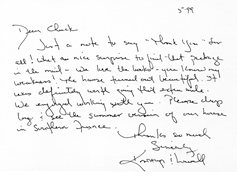 5-99
Dear Chuck
Just a note to say - Thank you - for
all! What a nice surprise to find that package
in the mail - We love the books - you know my
weakness! The house turned out beautiful. It
was definitely worth going that extra mile.
We enjoyed working with you. Please drop
by & see the summer version of our house
in Southern France.
Thanks so much
Sincerely